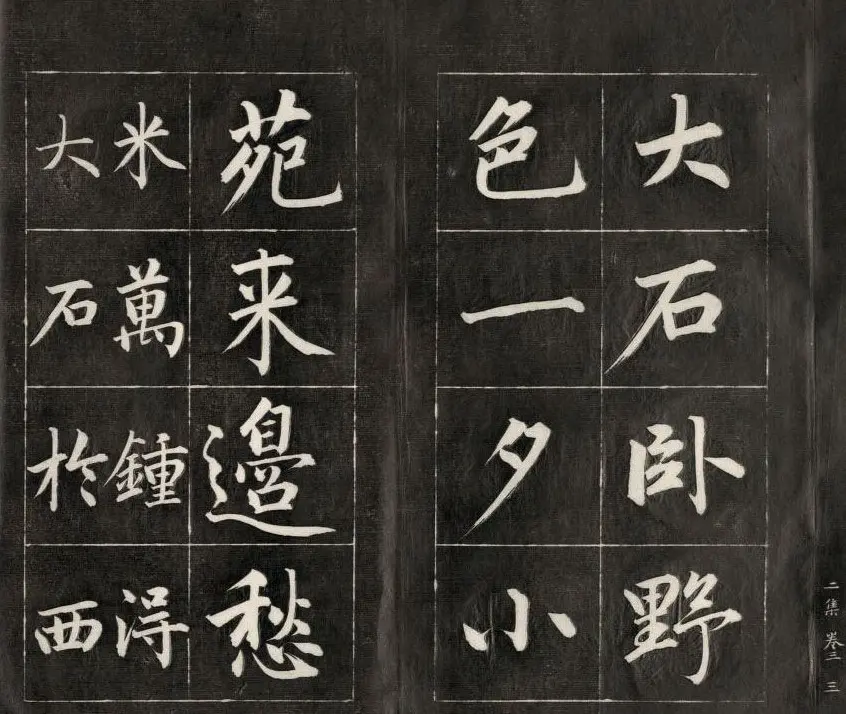 大石卧野
色一夕小
苑来邊愁
米萬鍾得
大石於西
二集 卷三 三